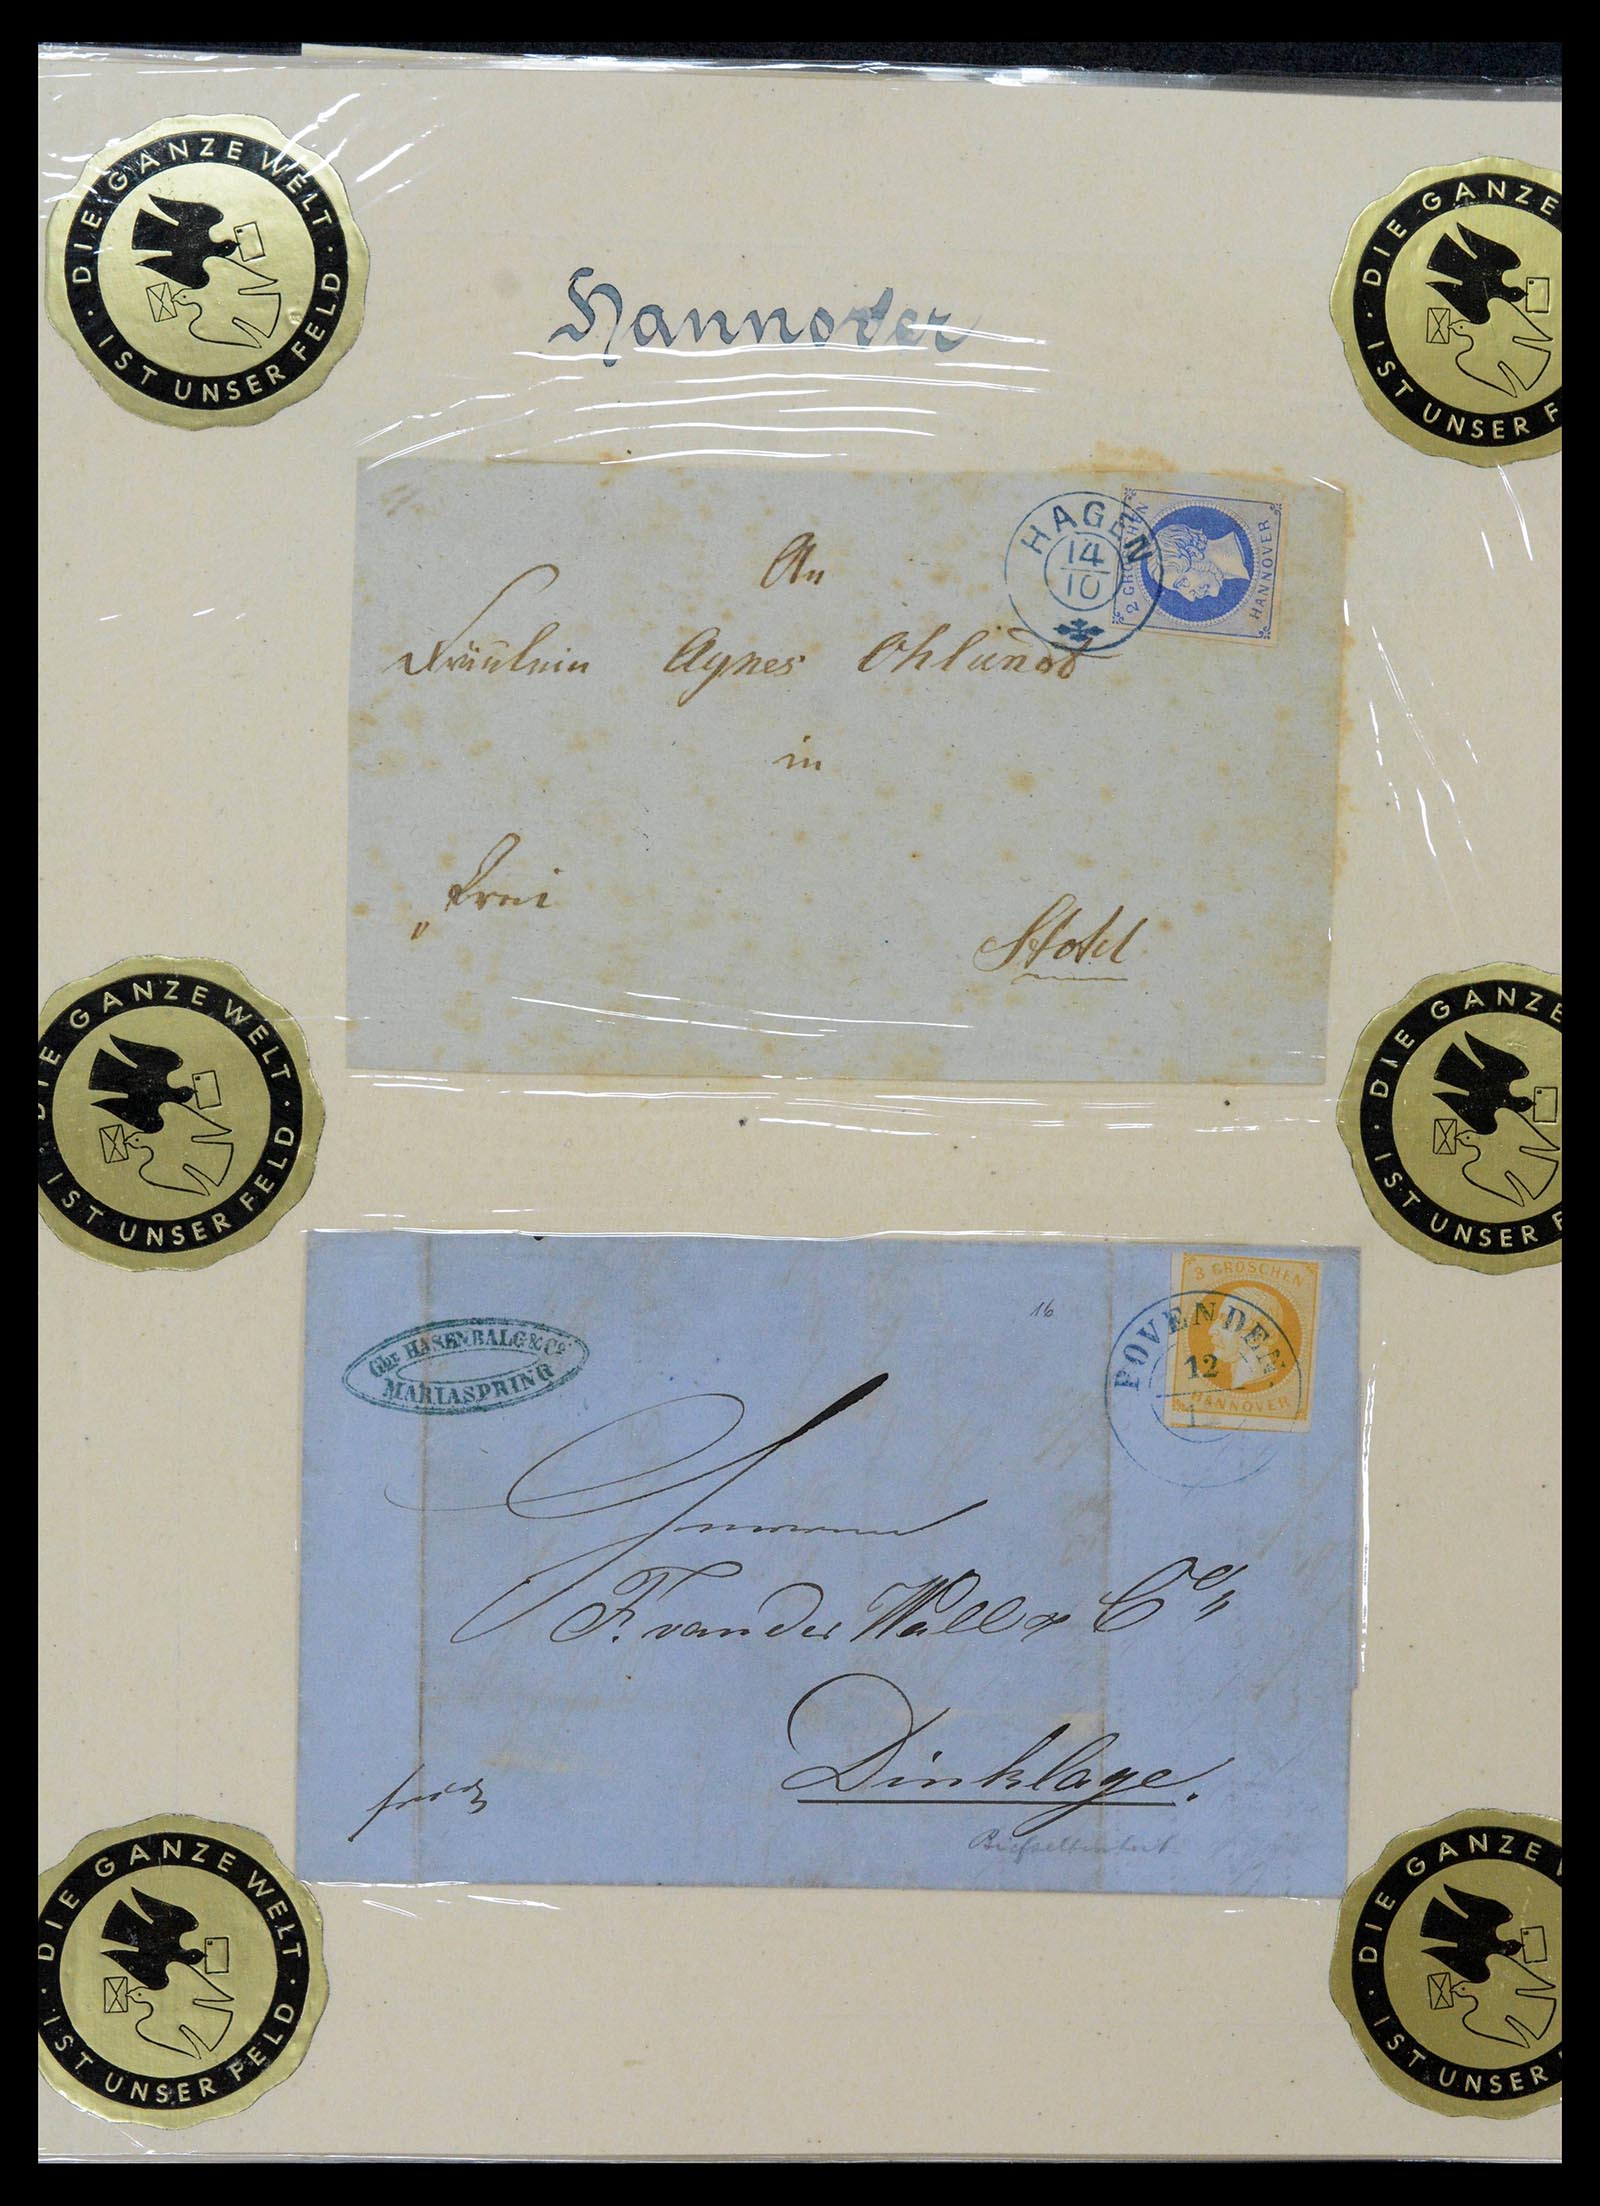 DIE GANZE WELT · IST UNSER FELD ·
DIE GANZE
· IST UNSER F
Hannover
HAGEN
14
10
2 GROSCHEN
HANNOVER
An
Fräulein Agnes Ohlandt
in
„ Frei
Stotel
DIE GANZE WELT · IST UNSER FELD ·
DIE GANZE
· IST UNSER F
Gbr. HASENBALG & Co
MARIASPRING
16
BOVENDEN.
12
1
3 GROSCHEN
HANNOVER
F. van der Wall & Co„
Dinklage.
Briefseltenheit
DIE GANZE WELT · IST UNSER FELD ·
DIE GANZE W
· IST UNSER